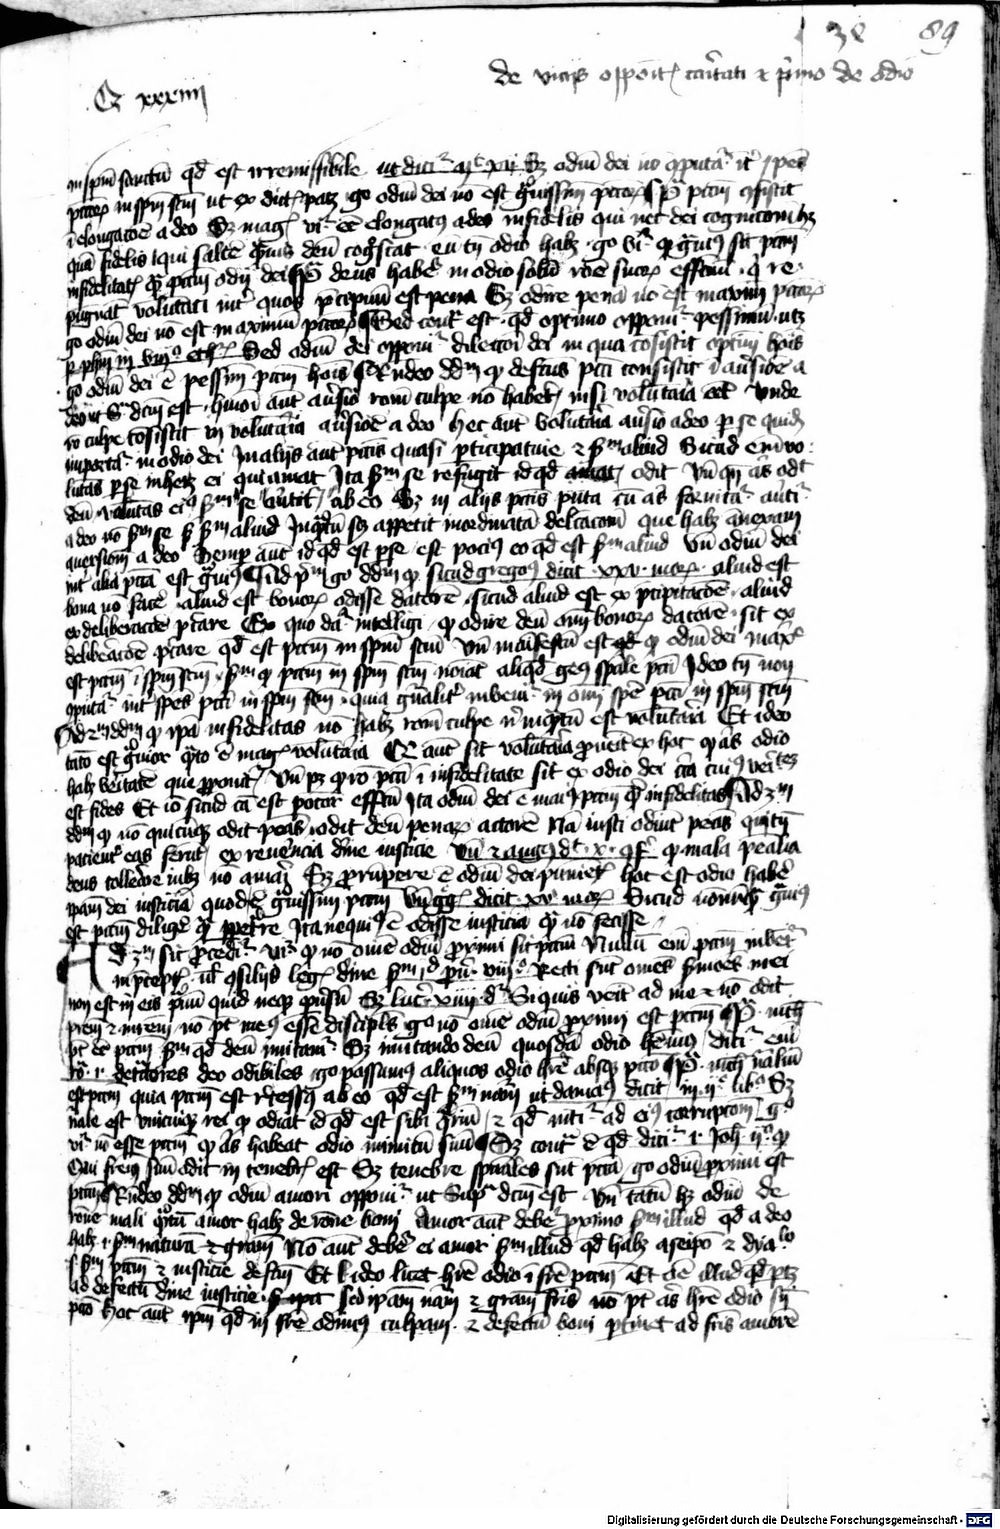 38 89
de vicijs opposit(is) caritati et p(ri)mo de odio
Q xxxiiij
in sp(iritu)m sanctu(m) q(uo)d est irremissibile ut dicit(ur) xij Sz odiu(m) dei no(n) (com)putat(ur) int(er) spes
p(ec)cator(um) in sp(iritu)m s(an)c(tu)m ut ex dict(is) patz g(o) odiu(m) dei no(n) est g(ra)uissim(um) p(ec)cator(um) p(ec)c(atu)m (con)sistit
i(n) elongac(i)o(n)e a deo Sz mag(is) v(idetu)r e(ss)e elongat(us) a deo infidelis qui nec dei cognic(i)onem hz
qua(m) fidelis qui salte(m) q(ua)muis deu(m) cog(no)scat eu(m) t(ame)n odio habz g(o) v(idetu)r q(uod) g(ra)ui(us) sit p(ec)c(atu)m
infidelitat(is) q(uam) p(ec)c(atu)m odij dei deus habet(ur) in odio solu(m) r(ati)o(n)e suor(um) effectuu(m) q(ui) re
pugnat voluntati int(er) quos p(re)cipuu(m) est pena Sz odire pena(m) no(n) est maximu(m) p(ec)cator(um)
go odiu(m) dei no(n) est maximu(m) p(ec)cator(um) Sed cont(ra) est q(uo)d optimo opponit(ur) pessimu(m) utz
p(er) ph(ilosophu)m in viij(o) eth(icorum) Sed odiu(m) dei opponit(ur) dilect(i)oni dei in qua co(n)sistit optimu(m) ho(min)is
go odiu(m) dei e(st) pessimu(m) p(ec)c(atu)m ho(min)is R(espo)ndeo d(icen)d(u)m q(uod) defectus p(ec)c(at)i consistit i(n) au(er)sio(n)e a
deo ut s(upra) d(i)c(tu)m est hui(us)mo(d)i aut(em) au(er)sio r(ati)o(n)em culpe no(n) haberet nisi volu(n)taria e(ss)et Unde
r(ati)o culpe co(n)sistit in volu(n)taria au(er)sio(n)e a deo hec aut(em) volu(n)taria au(er)sio a deo p(er) se quide(m)
importat(ur) in odio dei In alijs aut(em) p(ec)c(at)is quasi p(ar)ticipatiue (et) s(ecundu)m aliud Sicud enim vo
luntas p(er) se inheret ei quod amat Ita s(ecundu)m se refugit id q(uo)d odit Vn(de) q(ua)n(do) a(liqui)s odit
deu(m) voluntas ei(us) s(ecundu)m se au(er)tit(ur) ab eo Sz in alijs p(ec)c(at)is puta cu(m) a(liqui)s fornicat(ur) au(er)tit(ur)
a deo no(n) s(ecundu)m se s(ed) s(ecundu)m aliud Inq(uan)tu(m) s(cilicet) appetit inordinata(m) delectac(i)o(n)em que habz annexam
auersionem a deo Semp(er) aut(em) id q(uo)d est p(er) se est poci(us) eo q(uo)d est s(ecundu)m aliud Vn(de) odiu(m) dei
int(er) alia p(ec)c(at)a est g(ra)ui(us) Ad p(rimu)m go d(icen)d(u)m q(uod) sicud gregori(us) dicit xxv moral(ium) aliud est
bona no(n) facere aliud est bonor(um) odisse datorem sicud aliud est ex p(re)cipitac(i)o(n)e aliud
ex deliberac(i)o(n)e peccare Ex quo dat(ur) intelligi q(uod) odire deu(m) o(mn)i(u)m bonor(um) datorem sit ex
deliberac(i)o(n)e peccare q(uo)d est p(ec)c(atu)m in sp(iritu)m s(an)c(tu)m Vn(de) manifestu(m) est q(uod) odiu(m) dei max(ime)
est p(ec)c(atu)m i(n) sp(iritu)m s(an)c(tu)m s(ecundu)m q(uod) p(ec)c(atu)m in sp(iritu)m s(an)c(tu)m no(m)i(n)at aliq(uo)d gen(us) sp(eci)ale p(ec)c(at)i Ideo t(ame)n non
(com)putat(ur) int(er) spe(cie)s p(ec)c(at)i in sp(iritu)m s(an)c(tu)m quia gen(er)alit(er) inuenit(ur) in o(mn)i spe(cie) p(ec)c(at)i in sp(iritu)m s(an)c(tu)m
Ad 2(m) d(icen)d(u)m q(uod) ipsa infidelitas no(n) habz r(ati)o(n)em culpe n(isi) inq(uan)tu(m) est volu(n)taria Et ideo
tanto est g(ra)uior q(uan)to e(st) mag(is) volu(n)taria Q(uod) aut(em) sit volu(n)taria p(ro)uenit ex hoc q(uod) a(liqui)s odio
habz veritate(m) que p(ro)ponit(ur) Vn(de) pz q(uod) r(ati)o p(ec)c(at)i i(n) infidelitate sit ex odio dei circa cui(us) veritate(m)
est fides Et i(de)o sicud ca(usa) est potior effectu Ita odiu(m) dei e(st) mai(us) p(ec)c(atu)m q(uam) infidelitas Ad 3(m)
d(icen)d(u)m q(uod) no(n) quicu(m)q(ue) odit penas odit deu(m) penar(um) auctore(m) Na(m) m(ult)i odiu(n)t penas qui t(ame)n
pacient(er) eas feru(n)t ex reuere(n)cia di(ui)ne iusticie Vn(de) et aug(ustinus) d(icit) x (con)f(essionum) q(uod) mala penalia
deus tollerare iubz no(n) amari Sz p(ro)ru(m)pere i(n) odiu(m) dei punient(is) hoc est odio habere
ipsam dei iusticia(m) quod e(st) g(ra)uissimu(m) p(ec)c(atu)m Vn(de) gg dicit xxv mor(alium) Sicud no(n)nu(m)q(uam) g(ra)ui(us)
est p(ec)c(atu)m diligere q(uam) p(er)pet(ra)re Ita nequi(us) e(st) odisse iusticia(m) q(uam) no(n) fecisse
Ad 3(m) sic p(ro)cedit(ur) V(idetu)r q(uod) no(n) o(mn)e odiu(m) p(ro)ximi sit p(ec)c(atu)m Nullu(m) eni(m) p(ec)c(atu)m inuenit(ur)
in p(re)cept(is) u(e)l (con)silijs leg(is) di(ui)ne s(ecundu)m id p(ro)u(er) viij(o) Recti su(n)t om(n)es s(er)mones mei
non est in eis p(ra)uu(m) quid neq(ue) p(er)u(er)su(m) Sz luc(e) xiiij d(icitur) Si quis venit ad me et no(n) odit
p(at)rem et m(at)rem no(n) p(otes)t me(us) esse discip(u)l(u)s go no(n) o(mn)e odiu(m) p(ro)ximi est p(ec)c(atu)m nichil
p(otes)t e(ss)e p(ec)c(atu)m s(ecundu)m q(uo)d deu(m) imitam(ur) Sz imitando deu(m) quosda(m) odio h(ab)em(us) dicit(ur) eni(m)
ro 1 det(ra)ctores deo odibiles go possum(us) aliquos odio h(abe)re absq(ue) p(ec)c(at)o nichil nat(ur)aliu(m)
est p(ec)c(atu)m quia p(ec)c(atu)m est recess(us) ab eo q(uo)d est s(ecundu)m natura(m) ut damasc(enus) dicit in ij(o) lib(r)o Sz
nat(ura)le est unicuiq(ue) rei q(uod) odiat id q(uo)d est sibi (con)t(ra)riu(m) et q(uo)d nitit(ur) ad ei(us) corrupc(i)o(n)em go
v(idetu)r no(n) esse p(ec)c(atu)m q(uod) a(liqui)s habeat odio inimicu(m) suu(m) Sz cont(ra) e(st) q(uo)d dicit(ur) 1 Joh(annis) ij(o) q(uod)
Qui fr(atr)em suu(m) odit in tenebr(is) est Sz tenebre sp(irit)uales su(n)t p(ec)c(at)a go odiu(m) p(ro)ximi est
p(ec)c(atu)m R(espo)ndeo d(icen)d(u)m q(uod) odiu(m) amori opponit(ur) ut Sup(ra) d(i)c(tu)m est Vn(de) tantu(m) hz odiu(m) de
r(ati)o(n)e mali q(uan)tu(m) amor habz de r(ati)o(n)e boni Amor aut(em) debet(ur) p(ro)ximo s(ecundu)m illud q(uo)d a deo
habz i(d est) s(ecundu)m natura(m) et gra(tia)m No(n) aut(em) debet(ur) ei amor s(ecundu)m illud q(uo)d habz a seip(s)o et dyabolo
s(cilicet) s(ecundu)m p(ec)c(atu)m et iusticie defectu(m) Et ideo licet h(abe)re odio i(n) fr(atr)e p(ec)c(atu)m Et o(mn)e illud q(uo)d p(er)tinet
ad defectu(m) di(ui)ne iusticie sed ipsam na(tura)m et gra(tia)m fr(atr)is no(n) p(otes)t a(liqui)s h(abe)re odio sine
p(ec)c(at)o Hoc aut(em) ipsu(m) q(uo)d in fr(atr)e odim(us) culpam et defectu(m) boni p(er)tinet ad fr(atr)is amore(m)
Digitalisierung gefördert durch die Deutsche Forschungsgemeinschaft - DFG